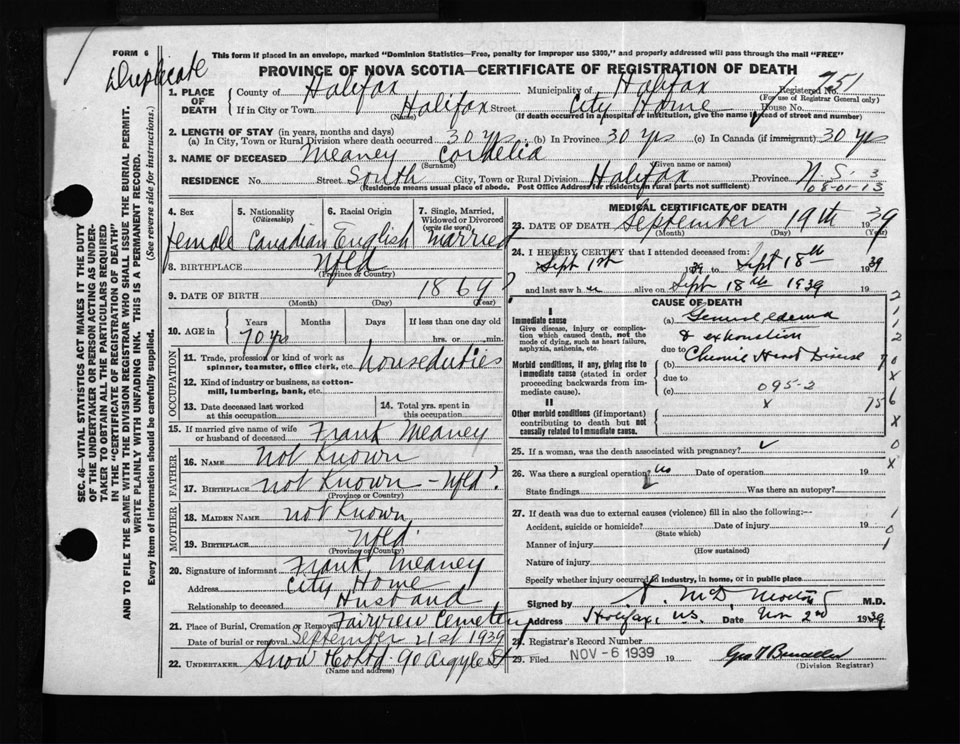 FORM 6
Duplicate
This form if placed in an envelope, marked "Dominion Statistics—Free, penalty for improper use $300," and properly addressed will pass through the mail "FREE"
PROVINCE OF NOVA SCOTIA—CERTIFICATE OF REGISTRATION OF DEATH
1. PLACE OF DEATH
County of Halifax
Municipality of Halifax
Registered No. 751
(For use of Registrar General only)
If in City or Town Halifax Street City Home House No.
(Name)
(If death occurred in a hospital or institution, give the name instead of street and number)
2. LENGTH OF STAY (in years, months and days)
(a) In City, Town or Rural Division where death occurred 30 yrs (b) In Province 30 yrs (c) In Canada (if immigrant) 30 yrs
3. NAME OF DECEASED Meaney Cordelia
(Surname) (Given name or names)
RESIDENCE No. Street South City, Town or Rural Division Halifax Province N.S. 3
(Residence means usual place of abode. Post Office Address for residents in rural parts not sufficient)
08-01-13
SEC. 46—VITAL STATISTICS ACT MAKES IT THE DUTY
OF THE UNDERTAKER OR PERSON ACTING AS UNDER-
TAKER TO OBTAIN ALL THE PARTICULARS REQUIRED
IN THE "CERTIFICATE OF REGISTRATION OF DEATH"
AND TO FILE THE SAME WITH THE DIVISION REGISTRAR WHO SHALL ISSUE THE BURIAL PERMIT.
WRITE PLAINLY WITH UNFADING INK. THIS IS A PERMANENT RECORD.
Every item of information should be carefully supplied. (See reverse side for instructions.)
4. Sex female
5. Nationality (Citizenship) Canadian
6. Racial Origin English
7. Single, Married, Widowed or Divorced (write the word) Married
8. BIRTHPLACE Nfld
(Province or Country)
9. DATE OF BIRTH 1869?
(Month) (Day) (Year)
10. AGE in Years Months Days If less than one day old
70 yrs hrs. or min.
OCCUPATION
11. Trade, profession or kind of work as spinner, teamster, office clerk, etc. houseduties
12. Kind of industry or business, as cotton-mill, lumbering, bank, etc.
13. Date deceased last worked at this occupation
14. Total yrs. spent in this occupation
15. If married give name of wife or husband of deceased Frank Meaney
FATHER
16. NAME not Known
17. BIRTHPLACE not Known - Nfld?
(Province or Country)
MOTHER
18. MAIDEN NAME not Known
19. BIRTHPLACE Nfld
(Province or Country)
20. Signature of informant Frank Meaney
Address City Home
Relationship to deceased Husband
21. Place of Burial, Cremation or Removal Fairview Cemetery
Date of burial or removal September 21st 1939
22. UNDERTAKER Snow Co Ltd 90 Argyle St
(Name and address)
MEDICAL CERTIFICATE OF DEATH
23. DATE OF DEATH September 19th 1939
(Month) (Day) (Year)
24. I HEREBY CERTIFY that I attended deceased from:
Sept 1st 1939 to Sept 18th 1939
and last saw h er alive on Sept 18th 1939 19
CAUSE OF DEATH
I
Immediate cause
Give disease, injury or complication which caused death, not the mode of dying, such as heart failure, asphyxia, asthenia, etc.
(a) General edema
& exhaustion
due to
Morbid conditions, if any, giving rise to immediate cause (stated in order proceeding backwards from immediate cause).
(b) Chronic Heart Disease
due to
(c) 095-2
II
Other morbid conditions (if important) contributing to death but not causally related to immediate cause.
x 75
25. If a woman, was the death associated with pregnancy?
26. Was there a surgical operation? no Date of operation 19
State findings Was there an autopsy?
27. If death was due to external causes (violence) fill in also the following:—
Accident, suicide or homicide? Date of injury 19
(State which)
Manner of injury
(How sustained)
Nature of injury
Specify whether injury occurred in industry, in home, or in public place
Signed by M.D.
Address Halifax, N.S. Date Nov 2nd 1939
28. Registrar's Record Number
29. Filed NOV - 6 1939 19
(Division Registrar)